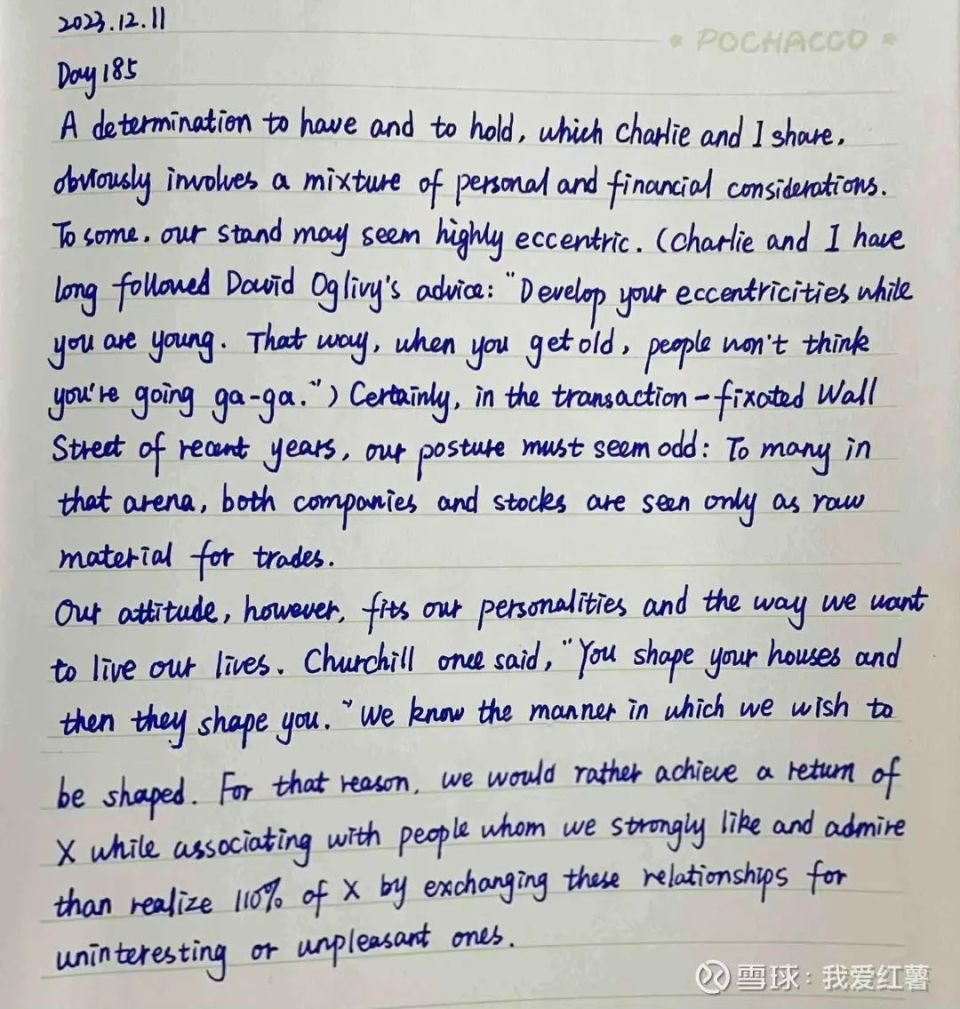 2023.12.11
POCHACCO
Day 185
A determination to have and to hold, which Charlie and I share,
obviously involves a mixture of personal and financial considerations.
To some, our stand may seem highly eccentric. (Charlie and I have
long followed David Oglivy's advice: "Develop your eccentricities while
you are young. That way, when you get old, people won't think
you're going ga-ga.") Certainly, in the transaction-fixated Wall
Street of recent years, our posture must seem odd: To many in
that arena, both companies and stocks are seen only as raw
material for trades.
Our attitude, however, fits our personalities and the way we want
to live our lives. Churchill once said, "You shape your houses and
then they shape you." We know the manner in which we wish to
be shaped. For that reason, we would rather achieve a return of
X while associating with people whom we strongly like and admire
than realize 110% of X by exchanging these relationships for
uninteresting or unpleasant ones.
雪球:我爱红薯